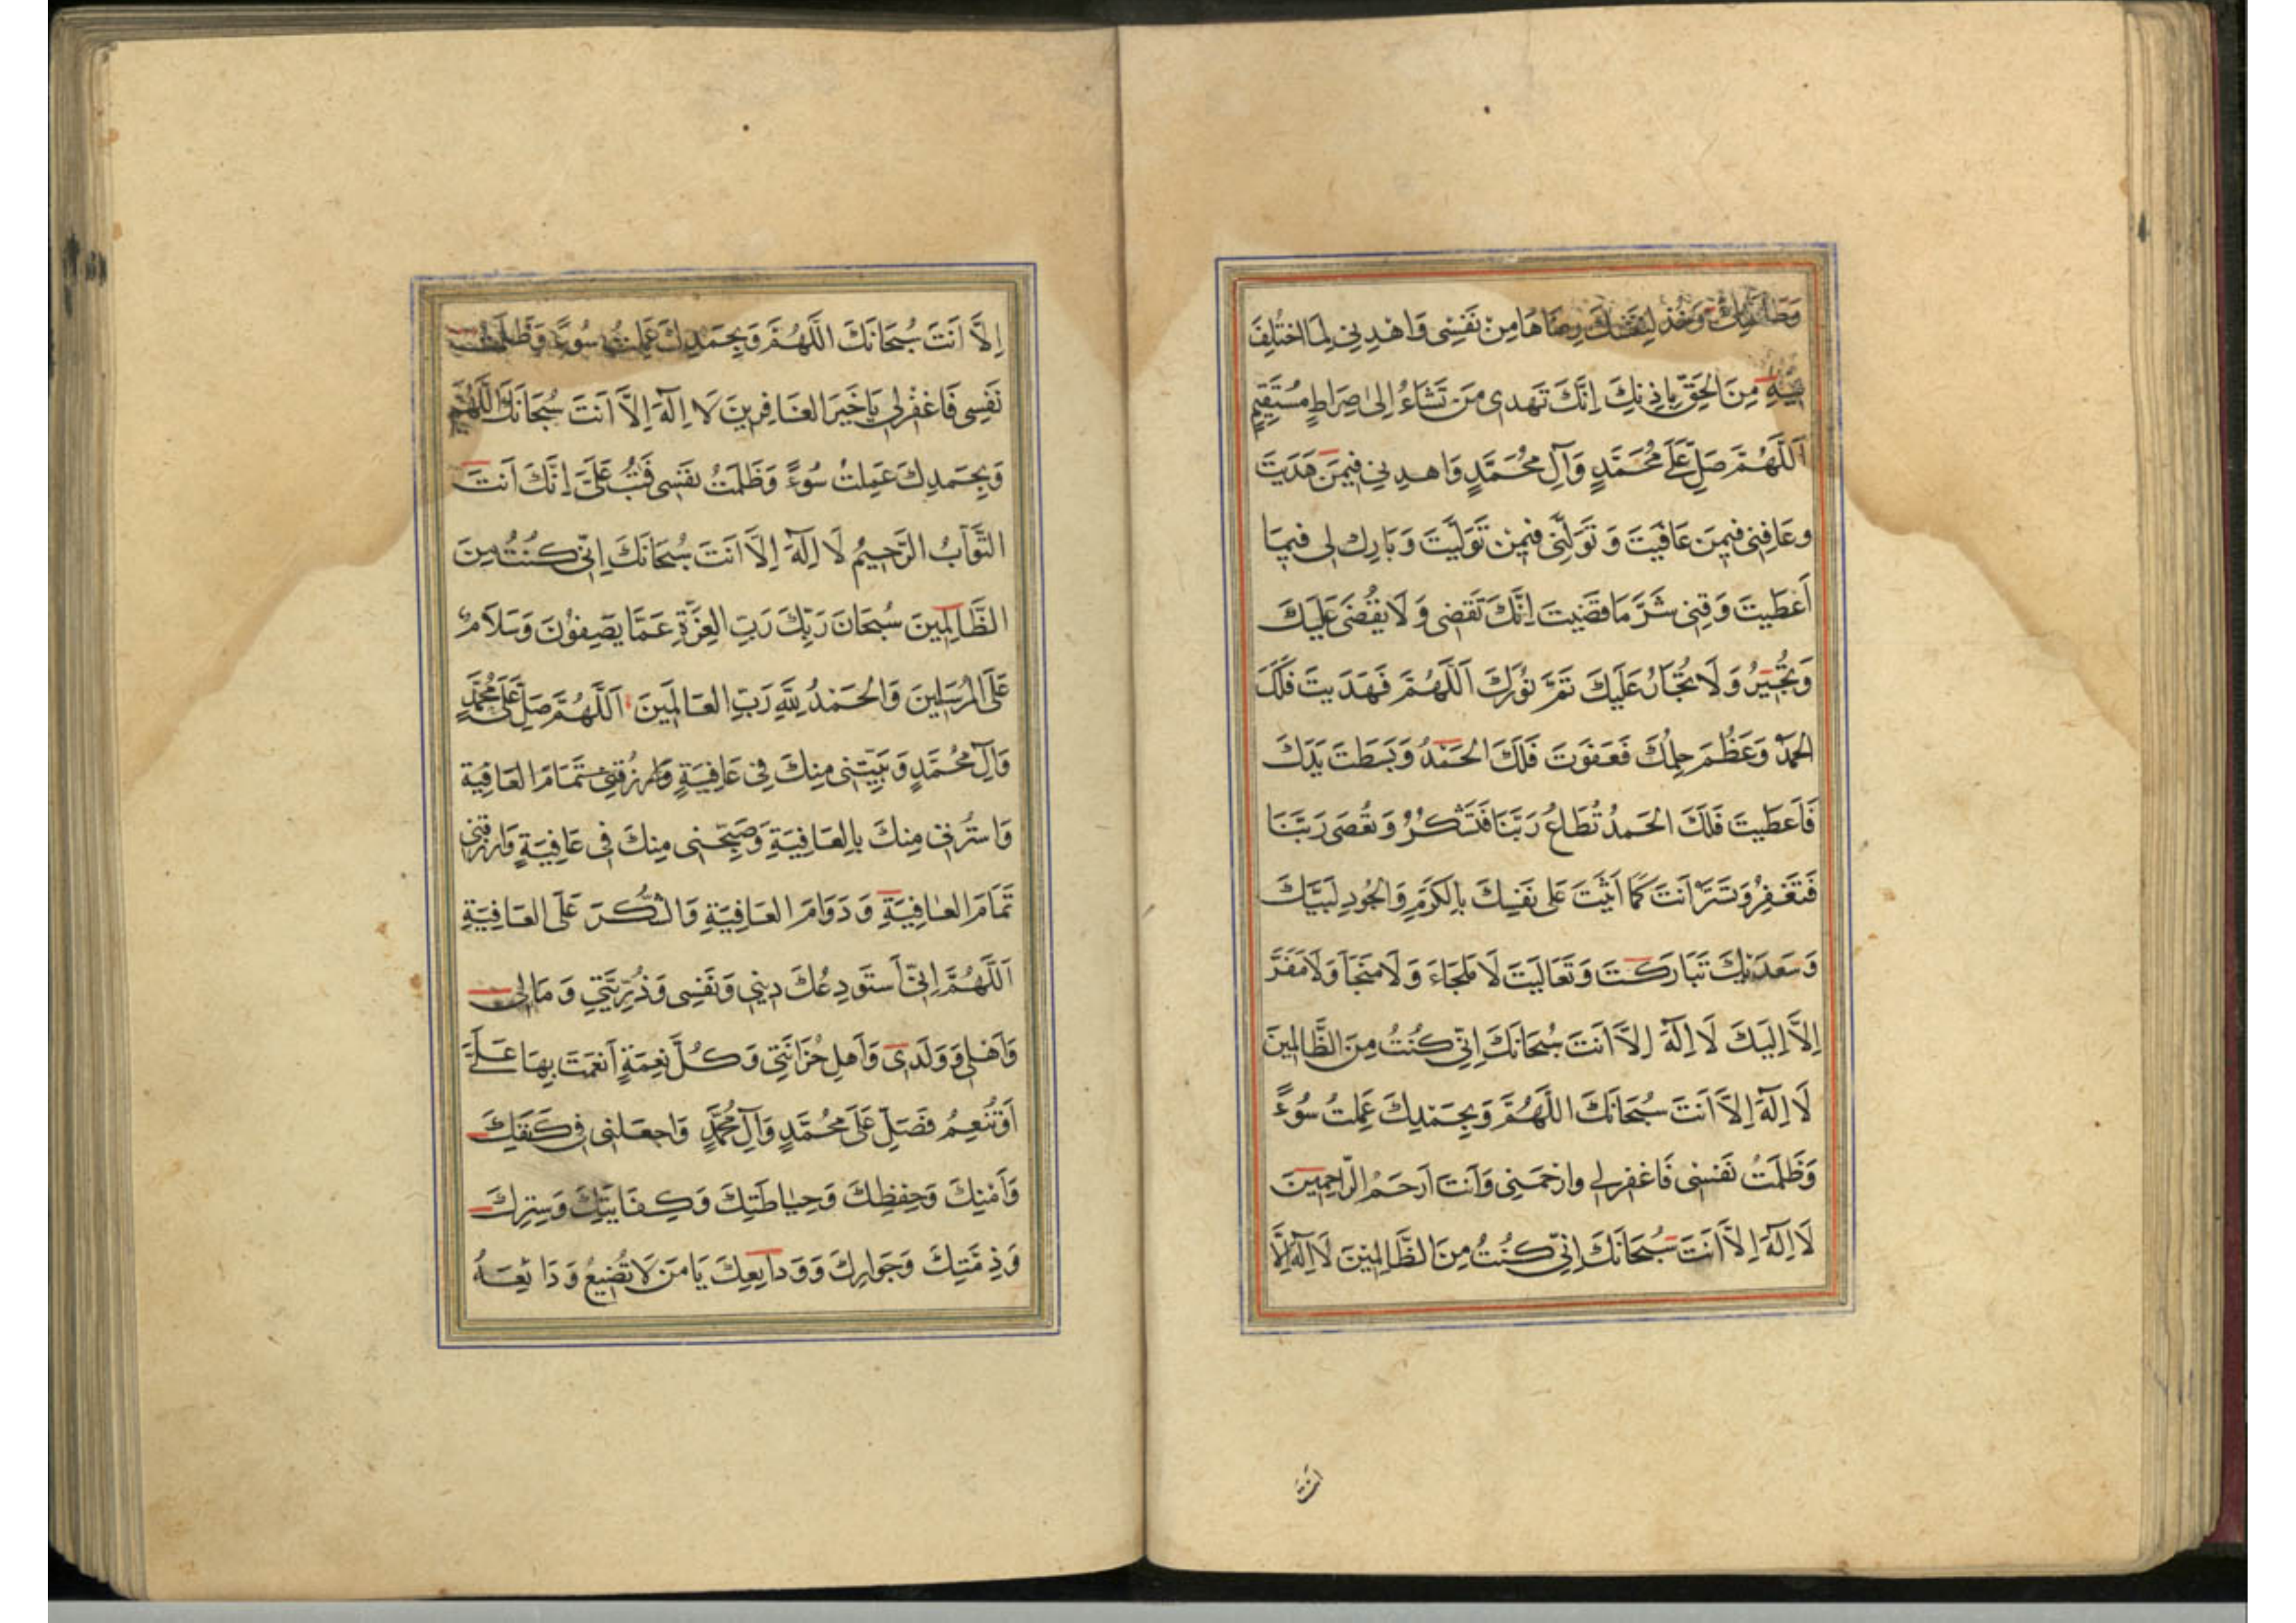 وَطَاعَتِكَ وَخُذ لِنَفْسِكَ رِضَاهَا مِنْ نَفْسِى وَاهْدِنِى لِمَا اخْتُلِفَ
فِيهِ مِنَ الحَقِّ بِاِذنِكَ اِنَّكَ تَهدى مَن تَشَاءُ اِلىٰ صِرَاطٍ مُسْتَقِيمٍ
اَللّٰهُمَّ صَلِّ عَلٰى مُحَمَّدٍ وَآلِ مُحَمَّدٍ وَاهدِنِى فِيمَن هَدَيتَ
وعَافِنِى فِيمَن عَافَيتَ وَ تَوَلَّنِى فِيمَنْ تَوَلَّيتَ وَبَارِك لِى فِيمَا
اَعْطَيتَ وَقِنِى شَرَّ مَا قَضَيتَ اِنَّكَ تَقضِى وَ لَا يُقْضَى عَلَيكَ
وَتُجِيرُ وَ لَا يُجَارُ عَلَيكَ تَمَّ نُورُكَ اَللّٰهُمَّ فَهَدَيتَ فَلَكَ
الحَمدُ وَعَظُمَ حِلمُكَ فَعَفَوتَ فَلَكَ الحَمْدُ وَبَسَطتَ يَدَكَ
فَاَعطَيتَ فَلَكَ الحَمدُ تُطَاعُ رَبَّنَا فَتَشْكُرُ وَ تُعْصَى رَبَّنَا
فَتَغْفِرُ وَتَستُرُ اَنتَ كَمَا اَثنَيتَ عَلى نَفسِكَ بِالكَرَمِ وَالجُودِ لَبَّيكَ
وَسَعدَيكَ تَبَارَكتَ وَتَعَالَيتَ لَا مَلجَاءَ وَ لَا مَنجَأ وَلَا مَفَرَّ
اِلاَّ اِلَيكَ لَا اِلٰهَ اِلاَّ اَنتَ سُبحَانَكَ اِنِّى كُنتُ مِنَ الظَّالِمِينَ
لَا اِلٰهَ اِلاَّ اَنتَ سُبحَانَكَ اللّٰهُمَّ وَبِحَمْدِكَ عَمِلتُ سُوءً
وَظَلَمتُ نَفسِى فَاغفِرلِى وارْحَمنِى وَاَنتَ اَرحَمُ الرَّاحِمِينَ
لَا اِلٰهَ اِلاَّ اَنتَ سُبحَانَكَ اِنِّى كُنتُ مِنَ الظَّالِمِيْنَ لَا اِلٰهَ اِلَّا
انت
اِلاَّ اَنتَ سُبحَانَكَ اللّٰهُمَّ وَبِحَمدِكَ عَمِلتُ سُوءً وَظَلَمتُ
نَفسِى فَاغفِرلِى يَا خَيرَ الغَافِرِينَ لَا اِلٰهَ اِلاَّ اَنتَ سُبحَانَكَ اللّٰهُمَّ
وَبِحَمدِكَ عَمِلتُ سُوءً وَظَلَمتُ نَفسِى فَتُب عَلَىَّ اِنَّكَ اَنتَ
التَّوَّابُ الرَّحِيمُ لَا اِلٰهَ اِلاَّ اَنتَ سُبحَانَكَ اِنِّى كُنتُ مِنَ
الظَّالِمِينَ سُبحَانَ رَبِّكَ رَبِّ العِزَّةِ عَمَّا يَصِفُونَ وَسَلَامٌ
عَلَى المُرسَلِينَ وَالحَمدُ لِلّٰهِ رَبِّ العَالَمِينَ اَللّٰهُمَّ صَلِّ عَلٰى مُحَمَّدٍ
وَآلِ مُحَمَّدٍ وَبَيِّتنِى مِنكَ فِى عَافِيَةٍ وَارزُقنِى تَمَامَ العَافِيَةِ
وَاسترُنِى مِنكَ بِالعَافِيَةِ وَصَبِّحنِى مِنكَ فِى عَافِيَةٍ وَارزُقنِى
تَمَامَ العَافِيَةِ وَ دَوَامَ العَافِيَةِ وَالشُّكرَ عَلَى العَافِيَةِ
اَللّٰهُمَّ اِنِّى اَستَودِعُكَ دِينِى وَنَفسِى وَذُرِّيَّتِى وَ مَالِى
وَاَهلِى وَوَلَدِى وَاَهلِ حُزَانَتِى وَكُلَّ نِعمَةٍ اَنعَمتَ بِهَا عَلَىَّ
اَوتُنعِمُ فَصَلِّ عَلَى مُحَمَّدٍ وَآلِ مُحَمَّدٍ وَاجعَلنِى فِى كَنَفِكَ
وَاَمْنِكَ وَحِفظِكَ وَحِيَاطَتِكَ وَكِفَايَتِكَ وَسِترِكَ
وَذِمَّتِكَ وَجَوَارِكَ وَوَدَايِعِكَ يَا مَن لَا تُضِيعُ وَدَائِعَهُ